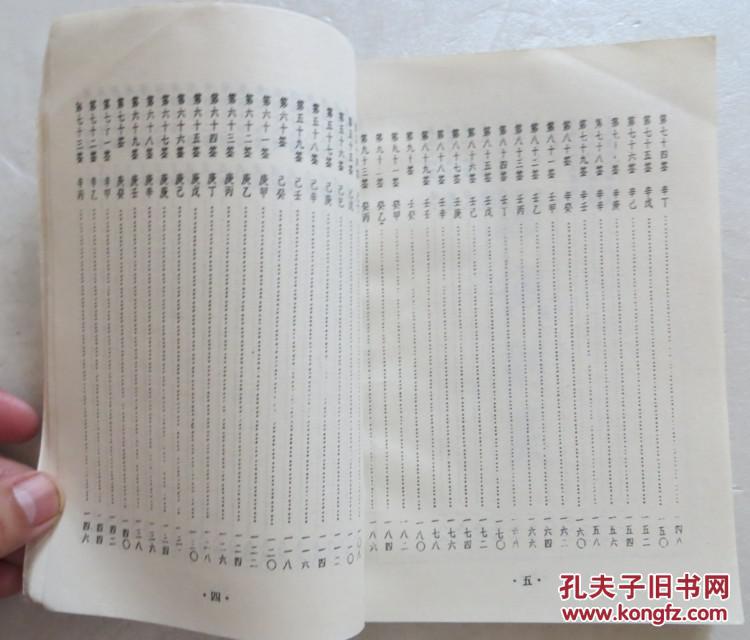 第五十六签 己己……一一二
第五十七签 己庚……一一四
第五十八签 己辛……一一六
第五十九签 己壬……一一八
第六十签 己癸……一二〇
第六十一签 庚甲……一二二
第六十二签 庚乙……一二四
第六十三签 庚丙……一二六
第六十四签 庚丁……一二八
第六十五签 庚戊……一三〇
第六十六签 庚己……一三二
第六十七签 庚庚……一三四
第六十八签 庚辛……一三六
第六十九签 庚壬……一三八
第七十签 庚癸……一四〇
第七十一签 辛甲……一四二
第七十二签 辛乙……一四四
第七十三签 辛丙……一四六
·四·
第七十四签 辛丁……一四八
第七十五签 辛戊……一五〇
第七十六签 辛己……一五二
第七十七签 辛庚……一五四
第七十八签 辛辛……一五六
第七十九签 辛壬……一五八
第八十签 辛癸……一六〇
第八十一签 壬甲……一六二
第八十二签 壬乙……一六四
第八十三签 壬丙……一六六
第八十四签 壬丁……一六八
第八十五签 壬戊……一七〇
第八十六签 壬己……一七二
第八十七签 壬庚……一七四
第八十八签 壬辛……一七六
第八十九签 壬壬……一七八
第九十签 壬癸……一八〇
第九十一签 癸甲……一八二
第九十二签 癸乙……一八四
第九十三签 癸丙……一八六
·五·
孔夫子旧书网
www.kongfz.com